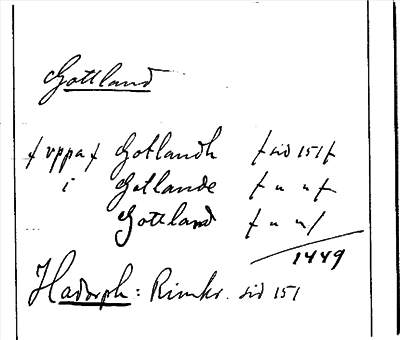 Gottland
/ vppa / Gotlandh / sid 151 /
i Gotlande / " " /
Gottland / " " /
1449
Hadorph: Rimkr. sid 151